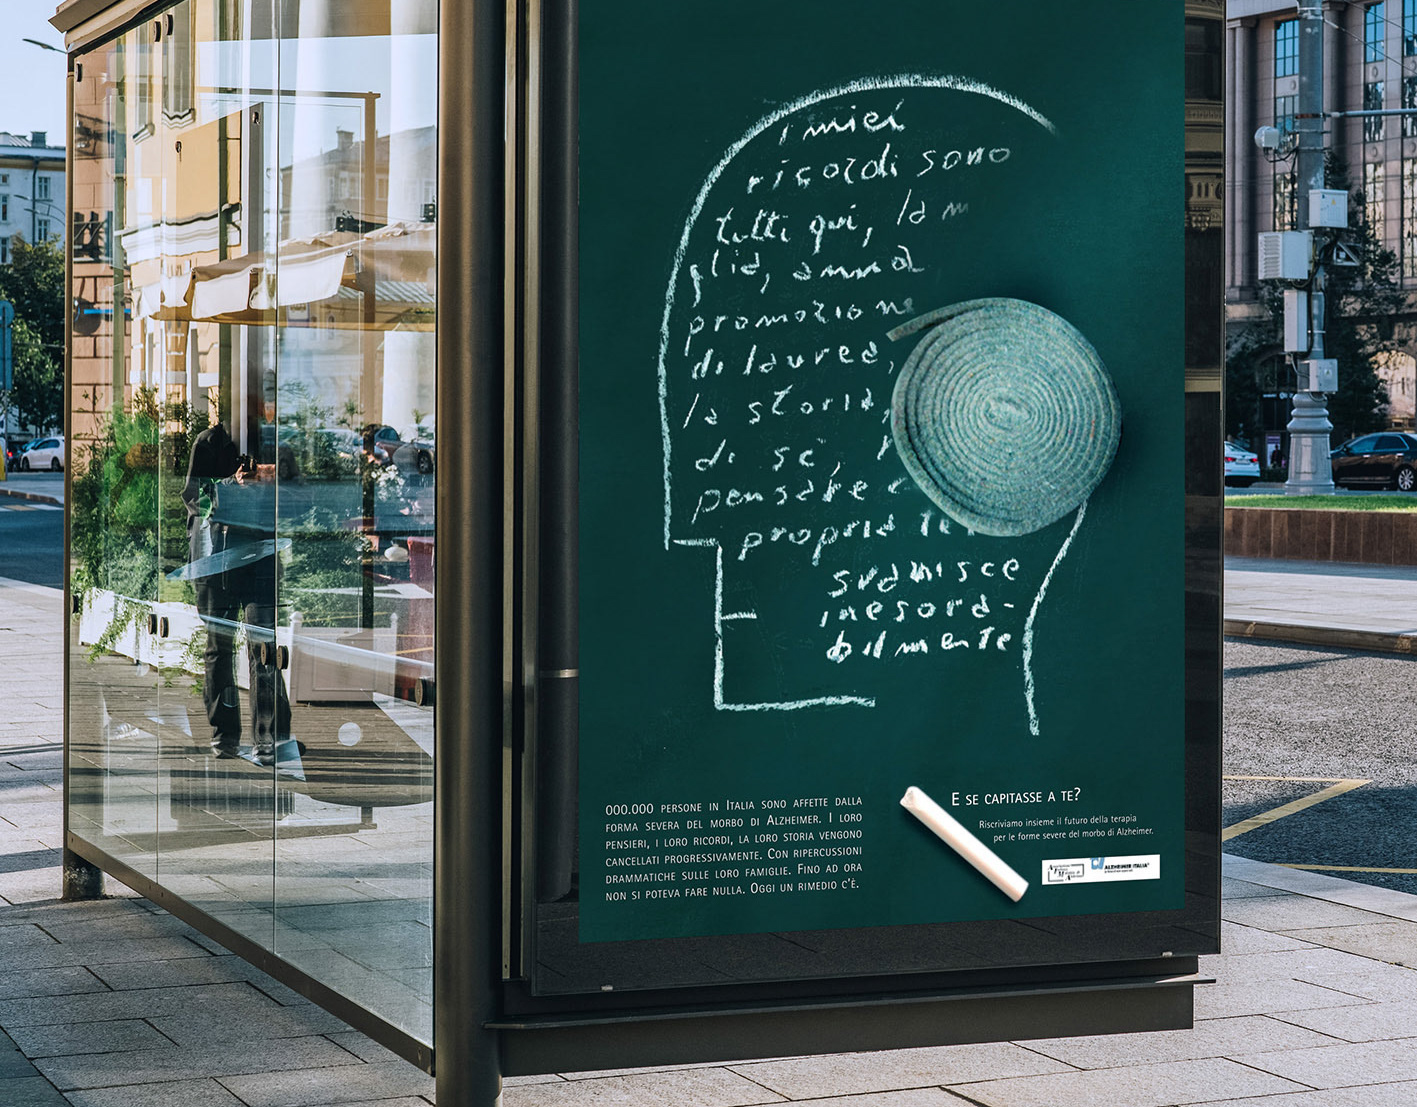 i miei
ricordi sono
tutti qui, la m
glia, anna
promozione
di laurea,
la storia,
di sé,
pensare e
propria te
svanisce
inesora-
bilmente
000.000 PERSONE IN ITALIA SONO AFFETTE DALLA
FORMA SEVERA DEL MORBO DI ALZHEIMER. I LORO
PENSIERI, I LORO RICORDI, LA LORO STORIA VENGONO
CANCELLATI PROGRESSIVAMENTE. CON RIPERCUSSIONI
DRAMMATICHE SULLE LORO FAMIGLIE. FINO AD ORA
NON SI POTEVA FARE NULLA. OGGI UN RIMEDIO C'È.
E SE CAPITASSE A TE?
Riscriviamo insieme il futuro della terapia
per le forme severe del morbo di Alzheimer.
ALZHEIMER ITALIA